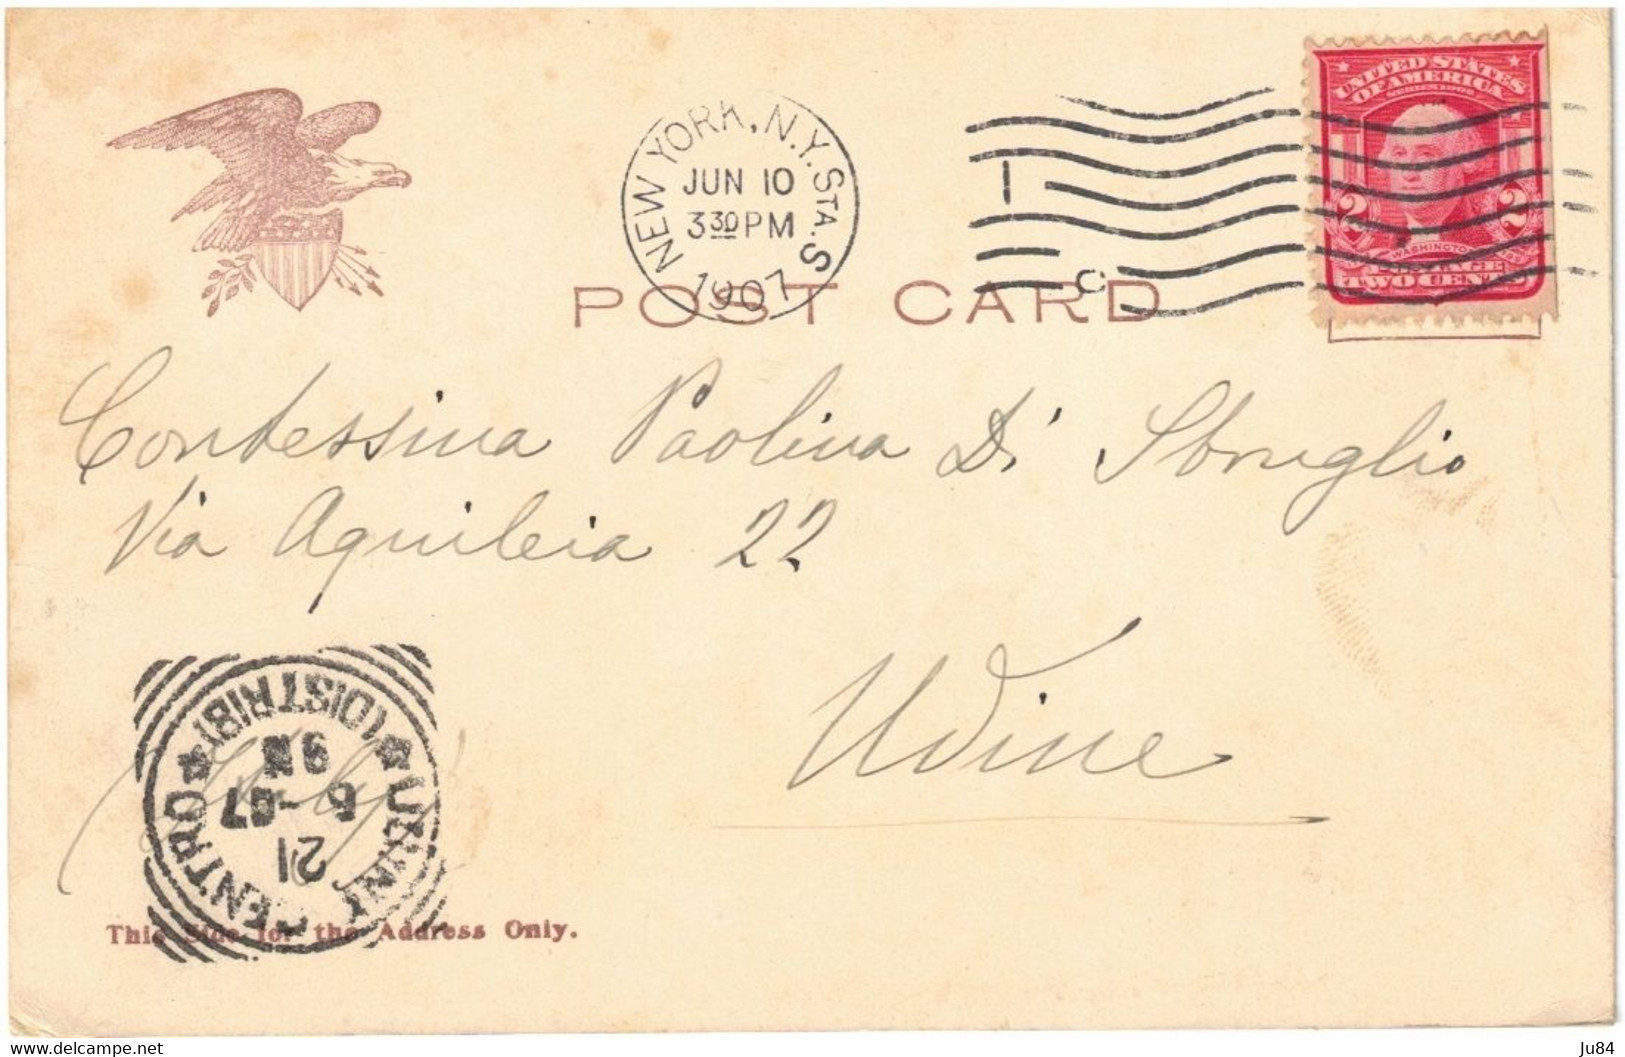 NEW YORK, N.Y. STA. S
JUN 10
3 30 PM
1907
1
C
UNITED STATES
OF AMERICA
SERIES 1902
2 2
WASHINGTON
TWO CENTS
POST CARD
Contessina Paolina Di Sbruglio
Via Aquileia 22
Udine
UDINE CENTRO
(DISTRIB)
21
6-07
9N
This Side for the Address Only.
www.delcampe.net
Ju84